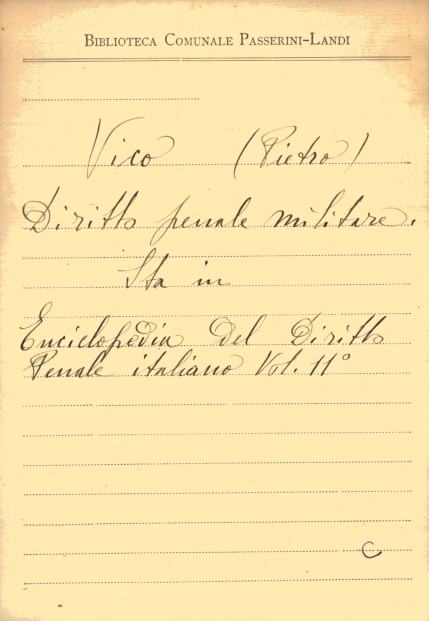 BIBLIOTECA COMUNALE PASSERINI-LANDI
Vico (Pietro)
Diritto penale militare.
Sta in
Enciclopedia del Diritto
Penale italiano Vol. 11°
C